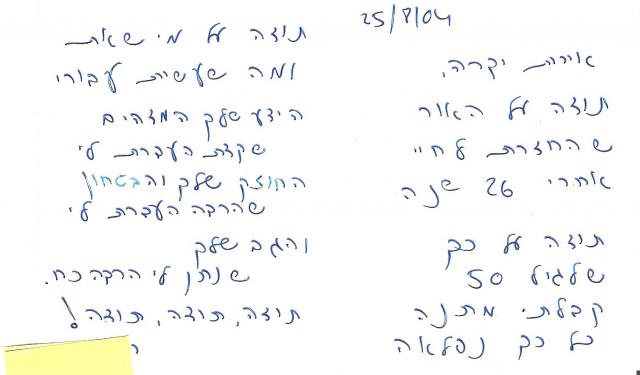 25/8/04
אירית יקרה,
תודה על האור
שהחזרת לחיי
אחרי 26 שנה
תודה על כך
שלגיל 50
קבלתי מתנה
כל כך נפלאה
תודה על מי שאת
ומה שעשית עבורי
הידע שלך המדהים
שקצת העברת לי
החוזק שלך והבטחון
שהרבה העברת לי
והגב שלך
שנתן לי הרבה כח.
תודה, תודה, תודה!